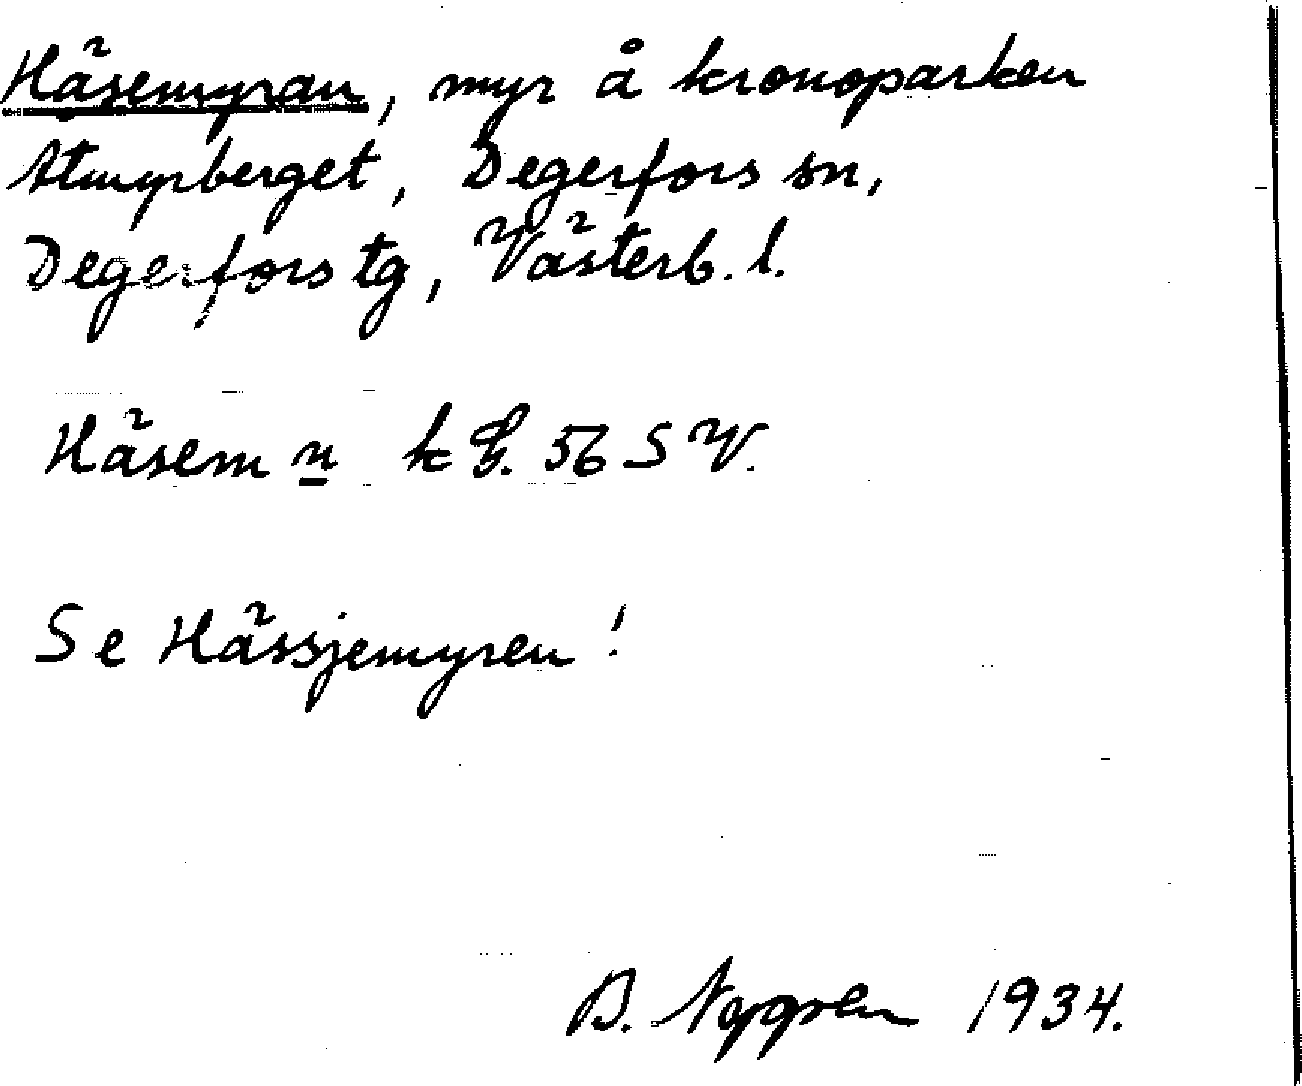 Häsemyran, myr å kronoparken
Åtmyrberget, Degerfors sn,
Degerfors tg, Västerb. l.
Häsem n k G. 56 S V.
Se Hässjemyren!
B. Nygren 1934.